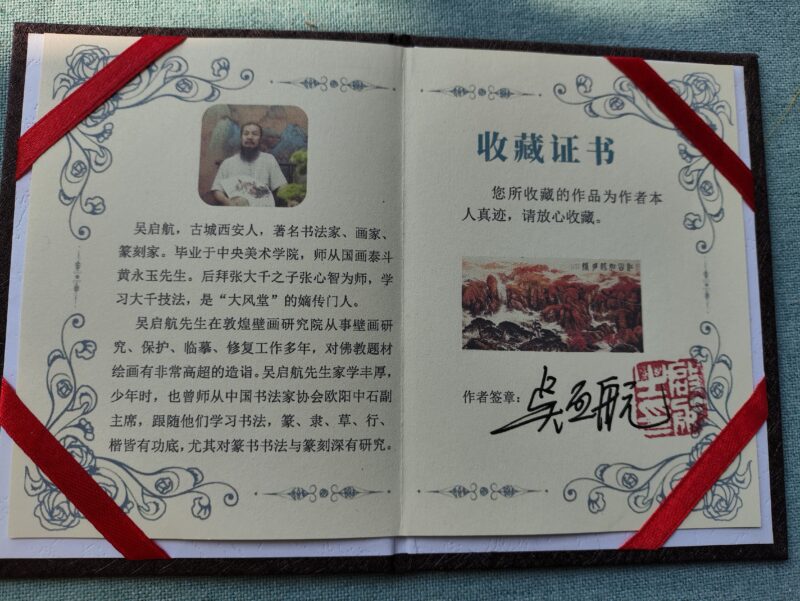 吴启航，古城西安人，著名书法家、画家、
篆刻家。毕业于中央美术学院，师从国画泰斗
黄永玉先生。后拜张大千之子张心智为师，学
习大千技法，是“大风堂”的嫡传门人。
吴启航先生在敦煌壁画研究院从事壁画研
究、保护、临摹、修复工作多年，对佛教题材
绘画有非常高超的造诣。吴启航先生家学丰厚，
少年时，也曾师从中国书法家协会欧阳中石副
主席，跟随他们学习书法，篆、隶、草、行、
楷皆有功底，尤其对篆书书法与篆刻深有研究。
收藏证书
您所收藏的作品为作者本
人真迹，请放心收藏。
作者签章：吴启航